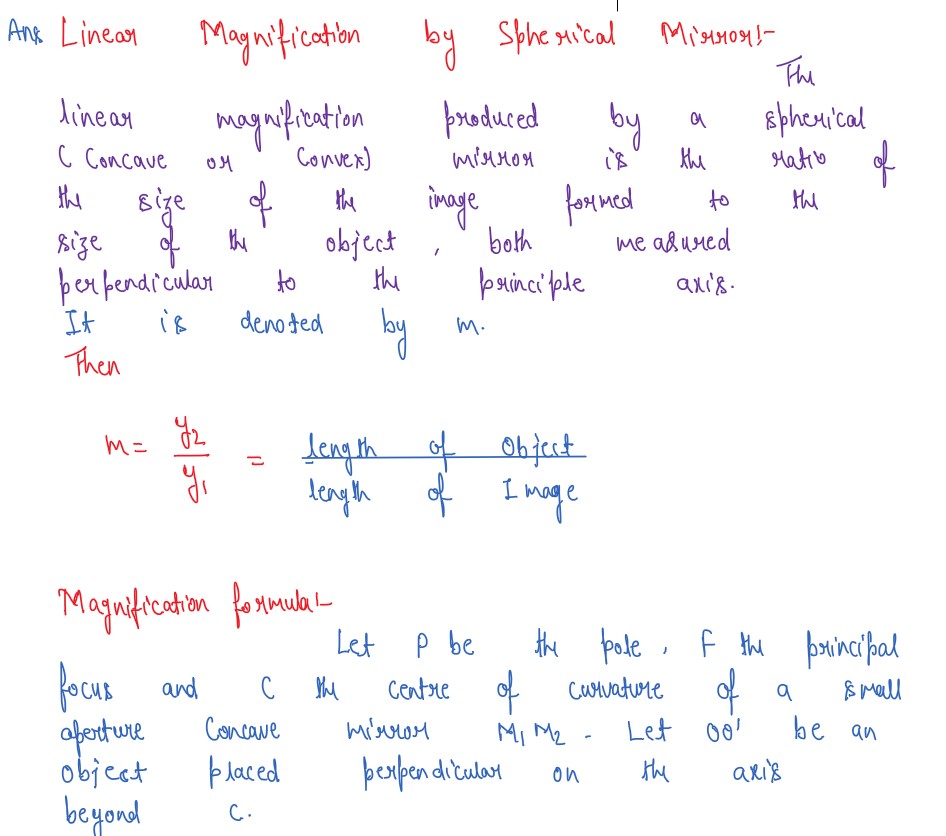 Ans Linear Magnification by Spherical Mirror:-
The
linear magnification produced by a spherical
( Concave or Convex) mirror is the ratio of
the size of the image formed to the
size of the object, both measured
perpendicular to the principle axis.
It is denoted by m.
Then
m = y2/y1 = length of Object / length of Image
Magnification formula:-
Let P be the pole, F the principal
focus and C the centre of curvature of a small
aperture Concave mirror M1 M2 - Let OO' be an
object placed perpendicular on the axis
beyond C.